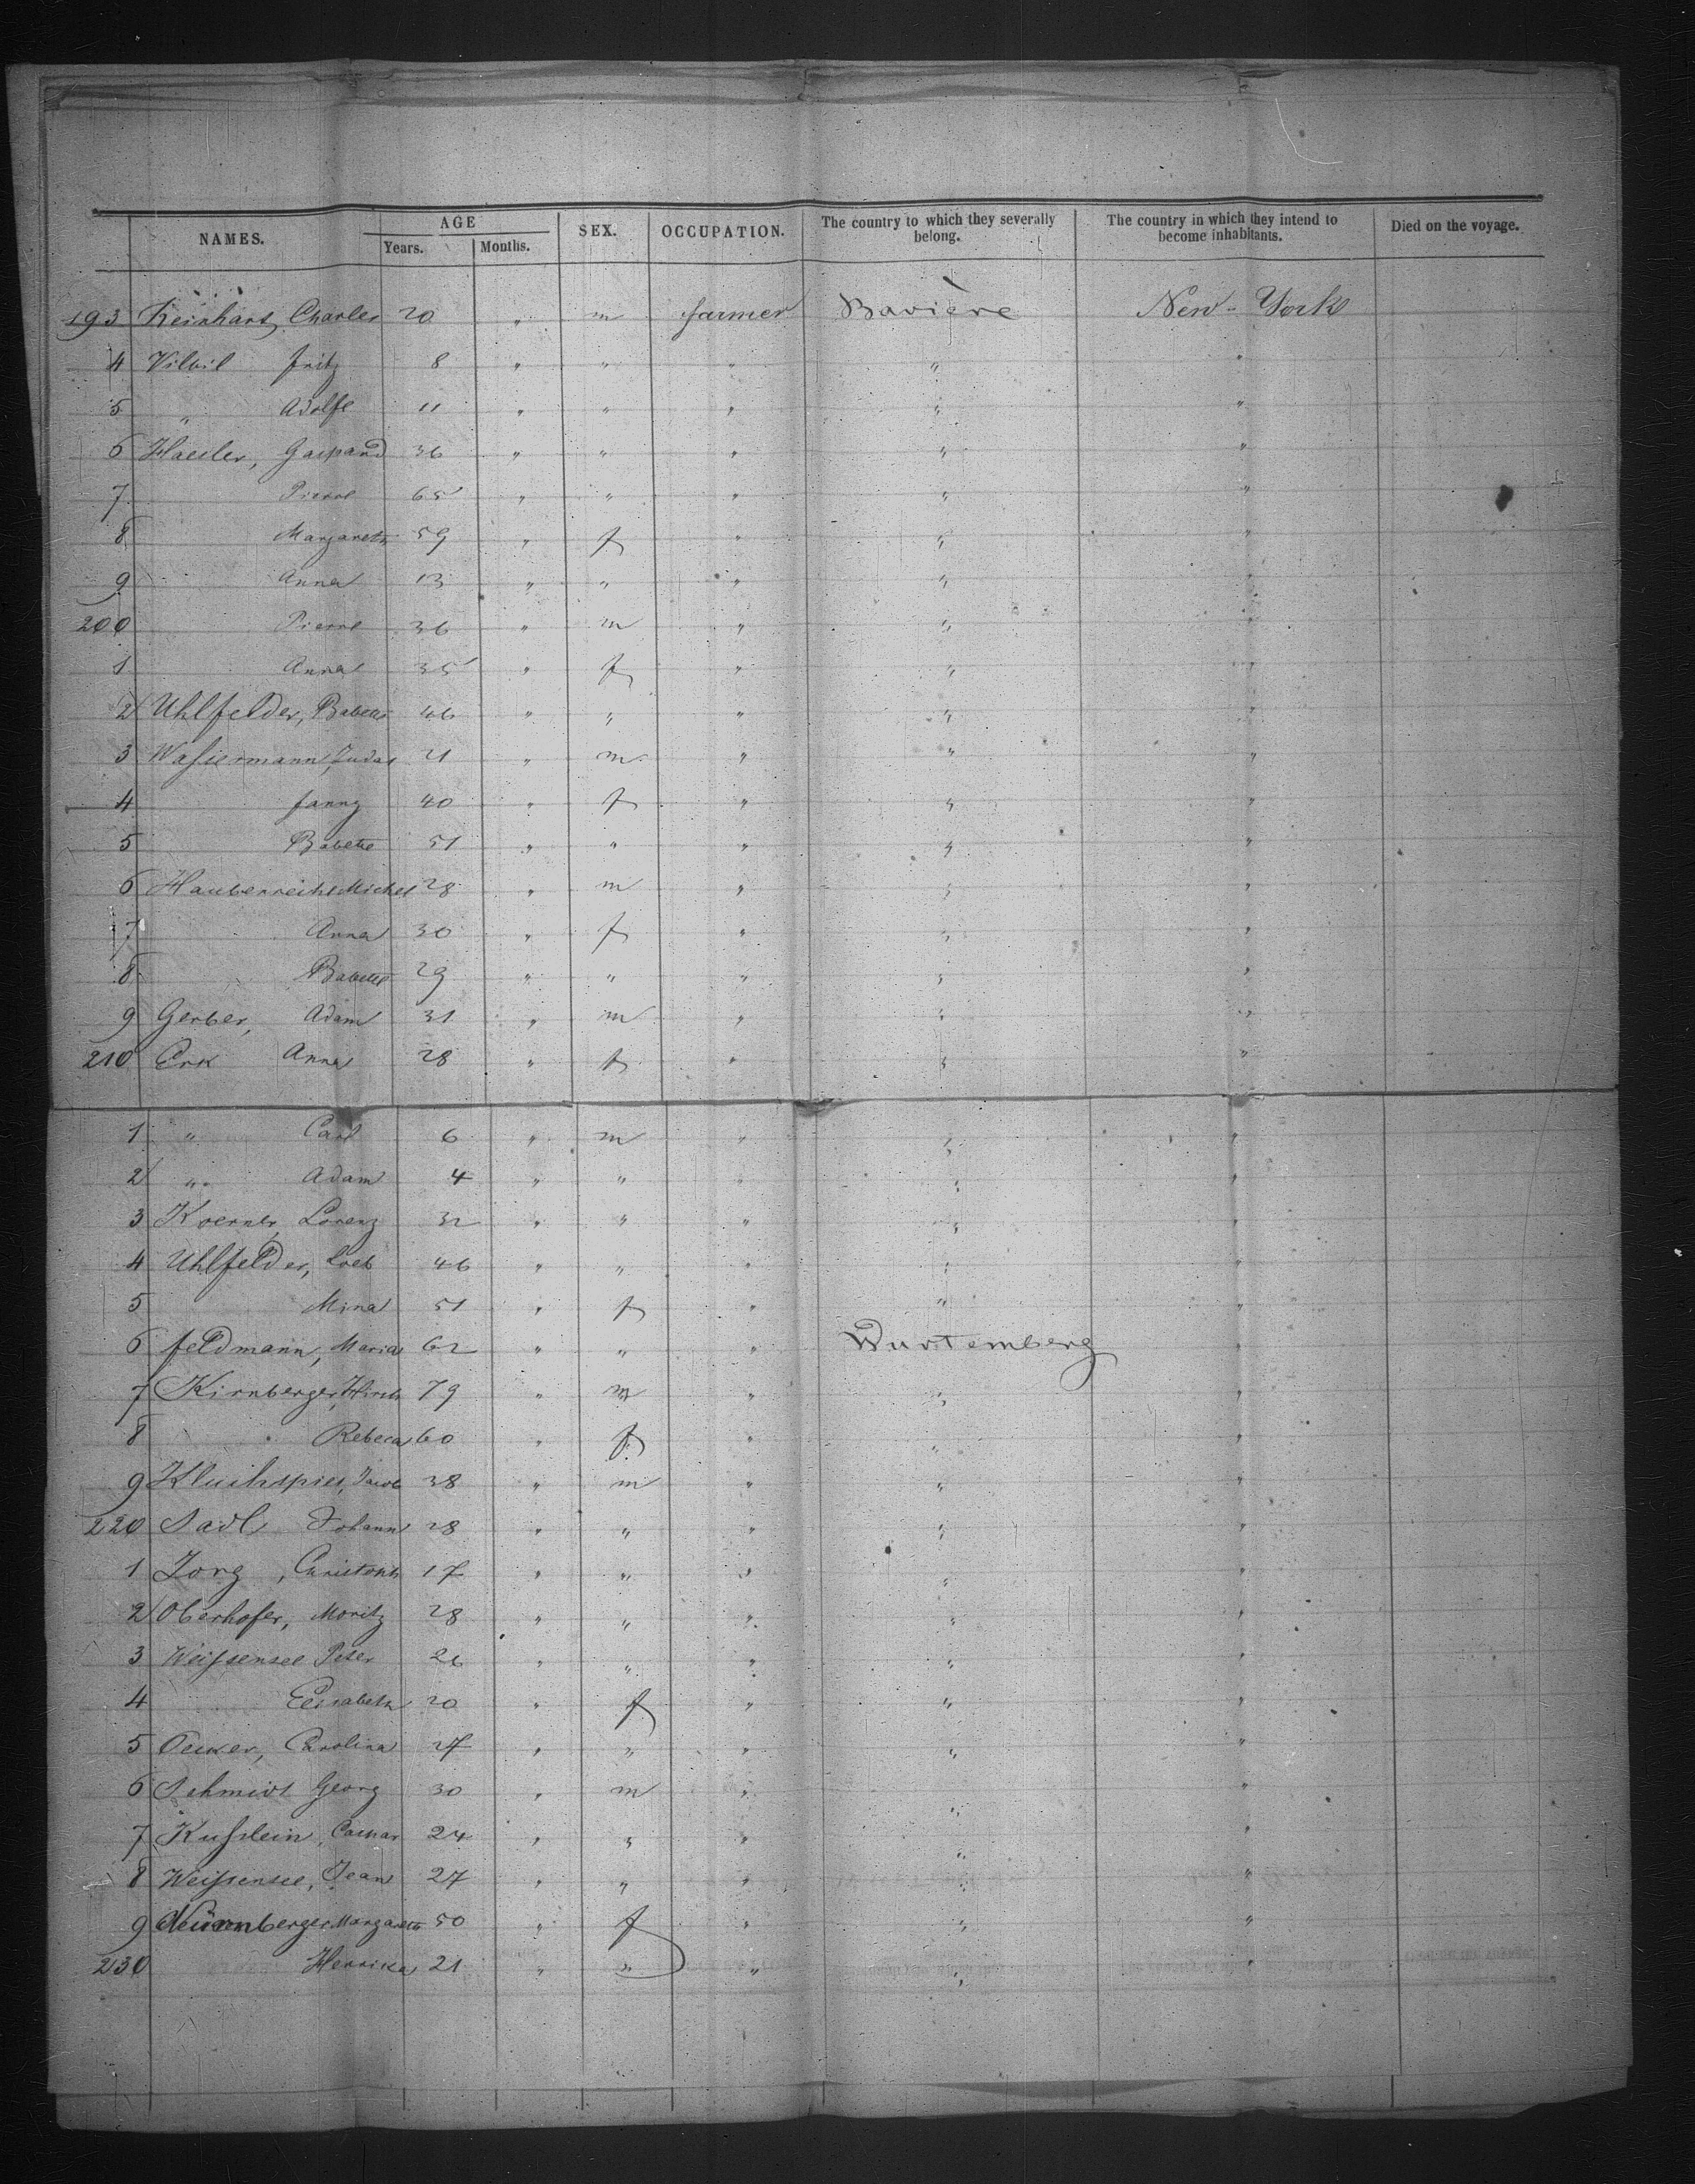 NAMES. AGE SEX. OCCUPATION. The country to which they severally belong. The country in which they intend to become inhabitants. Died on the voyage.
Years. Months.
193 Reinhart, Charles 20 " m farmer Bavière New-York
4 Vilbil Fritz 8 " " " " "
5 " Adolfe 11 " " " " "
6 Haesler, Gaspard 36 " " " " "
7 Pierre 65 " " " " "
8 Margareth 59 " f " " "
9 Anna 13 " " " " "
200 Pierre 36 " m " " "
1 Anna 35 " f " " "
2 Uhlfelder, Babette 46 " " " " "
3 Wassermann, Judas 21 " m " " "
4 Fanny 40 " f " " "
5 Babette 51 " " " " "
6 Michel 28 " m " " "
7 Anna 30 " f " " "
8 Babette 29 " " " " "
9 Gerber, Adam 31 " m " " "
210 Erk Anna 28 " f " " "
1 " Carl 6 " m " " "
2 " Adam 4 " " " " "
3 Koerner, Lorenz 32 " " " " "
4 Uhlfelder, Loeb 46 " " " " "
5 Mina 51 " f " " "
6 Feldmann, Maria 62 " " " Wurtemberg "
7 Kirnberger, Hirsch 79 " m " " "
8 Rebeca 60 " f " " "
9 Jacob 38 " m " " "
220 Sadl Johann 28 " " " " "
1 Jorg, Christoph 17 " " " " "
2 Oberhofer, Moritz 28 " " " " "
3 Weissensee Peter 26 " " " " "
4 Elisabeth 20 " f " " "
5 Carolina 27 " " " " "
6 Schmidt Georg 30 " m " " "
7 Kusslein, Caspar 24 " " " " "
8 Weissensee, Jean 27 " " " " "
9 Nürnberger Margareth 50 " f " " "
230 Henrika 21 " " " " "